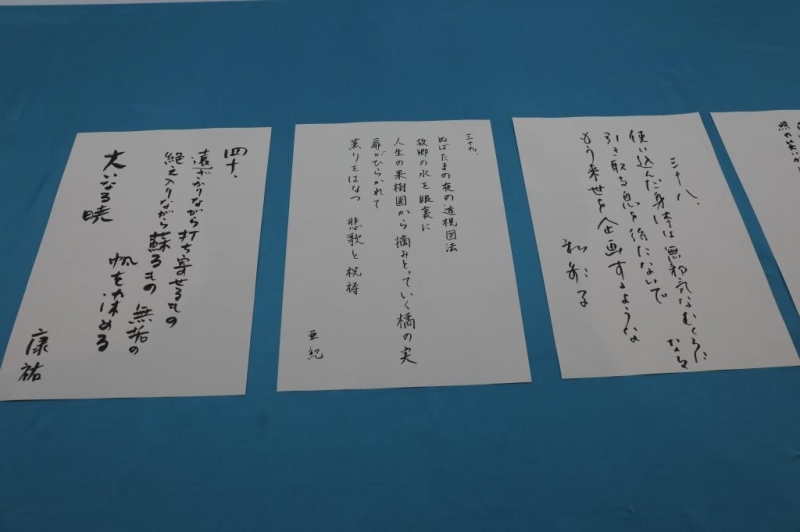 三十八、
使い込んだ身体は無邪気なむくろに
なる
引き取る息を待たないで
もう来世を企画するような
三十九、
ぬばたまの夜の透視図法
故郷の水を眼裏に
人生の果樹園から摘みとっていく橘の実
扉がひらかれて
薫りをはなつ 悲歌と祝祷
亜紀
四十、
遠ざかりながら打ち寄せるもの
絶え入りながら蘇るもの 無垢の
帆を染める
大いなる暁
康祐